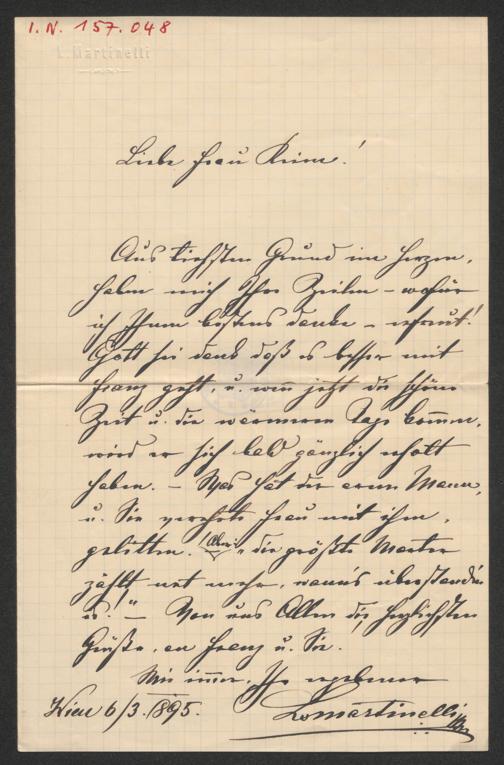 I. N. 157.048
L. Martinelli
Liebe Frau Keim!
Aus tiefsten Grund im Herzen,
haben mich Ihre Zeilen – wofür
ich Ihnen bestens danke – erfreut!
Gott sei dank daß es besser mit
Franz geht, u. wenn jetzt die schöne
Zeit u. die wärmeren Tage kommen,
wird er sich bald gänzlich erholt
haben. – Was hat der arme Mann,
u. Sie verehrte Frau mit ihm,
gelitten. Aber: „die größte Marter
zählt net mehr, wann's überstand'n
is!" – Von uns Allen die herzlichsten
Grüße, an Franz u. Sie.
Wie immer, Ihr ergebener
Wien 6/3. 1895. Lo martinelli